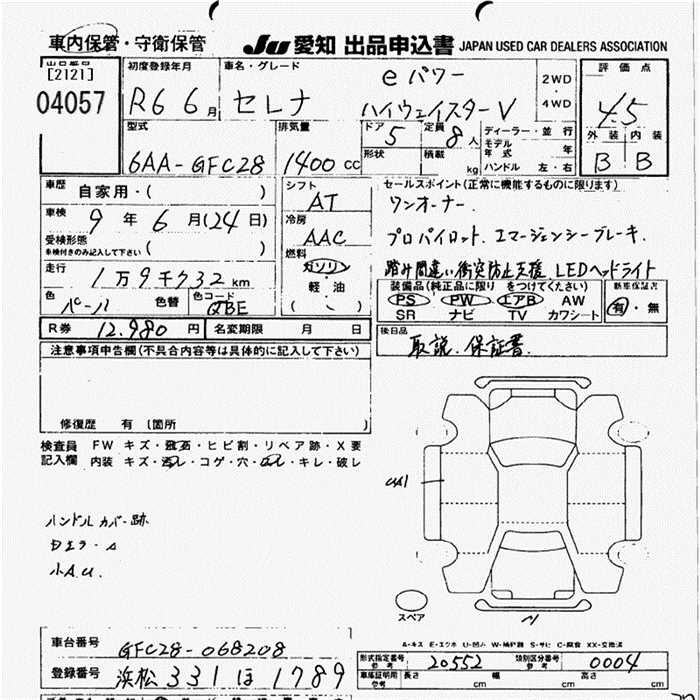 車内保管・守衛保管 JU 愛知 出品申込書 JAPAN USED CAR DEALERS ASSOCIATION
出品番号 [2121] 04057
初度登録年月 R6 6月
車名・グレード セレナ eパワー ハイウェイスターV
2WD ・ 4WD
評価点 4.5
外装 内装
B B
型式 6AA-GFC28
排気量 1400 cc
ドア 5 定員 8人
形状 積載 kg
ディーラー・並行
モデル年式 年
ハンドル 左・右
車歴 自家用・( )
シフト AT
セールスポイント(正常に機能するものに限ります)
ワンオーナー.
車検 9年 6月(24日)
冷房 AAC
プロパイロット. エマージェンシーブレーキ.
受検形態 ( )
車検付きのみ記入して下さい
燃料 ガソリン 軽・油 ( )
踏み間違い衝突防止支援 LEDヘッドライト
走行 1万9千732 km
装備品(純正品に限り ○をつけてください)
PS PW エアB AW
SR ナビ TV カワシート
新車保証書 有・無
色 パール 色替 色コード QBE
R券 12.980円 名変期限 月 日
後日品 取説. 保証書.
注意事項申告欄(不具合内容等は具体的に記入して下さい)
修復歴 有 〔箇所 〕
検査員記入欄 FW キズ・飛石・ヒビ割・リペア跡・X要
内装 キズ・汚レ・コゲ・穴・凹レ・キレ・破レ
ハンドルカバー跡
小A.U.
スペア
A-キズ E-エクボ U-凹ミ W-補修跡 S-サビ C-腐食 XX-交換済
車台番号 GFC28-068208
登録番号 浜松 331 ほ 1789
形式指定番号 参考 20552 類別区分番号 参考 0004
車庫証明用 参考 長さ cm 幅 cm 高さ cm